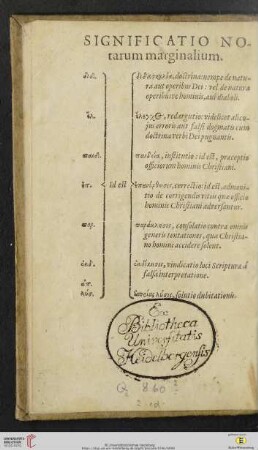 SIGNIFICATIO NO-
tarum marginalium.
διδ. διδασκαλία, doctrina: nempe de natu-
ra aut operibus Dei: vel de natura
operibúsve hominis, aut diaboli.
ἔλ. ἔλεγχος, redargutio: videlicet alicu-
jus erroris aut falsi dogmatis cum
doctrina verbi Dei pugnantis.
παιδ. παιδεία, institutio: id est, præceptio
officiorum hominis Christiani.
ἐπ. id est ἐπανόρθωσις, correctio: id est, admoni-
tio de corrigendis vitiis quæ officio
hominis Christiani adversantur.
παρ. παράκλησις, consolatio contra omnis
generis tentationes, quæ Christia-
no homini accidere solent.
ἐκδ. ἐκδίκησις, vindicatio loci Scripturæ à
falsa interpretatione.
λύσις, solutio dubitationis.
Ex
Bibliotheca
Universitatis
Heidelbergensis
Q 860